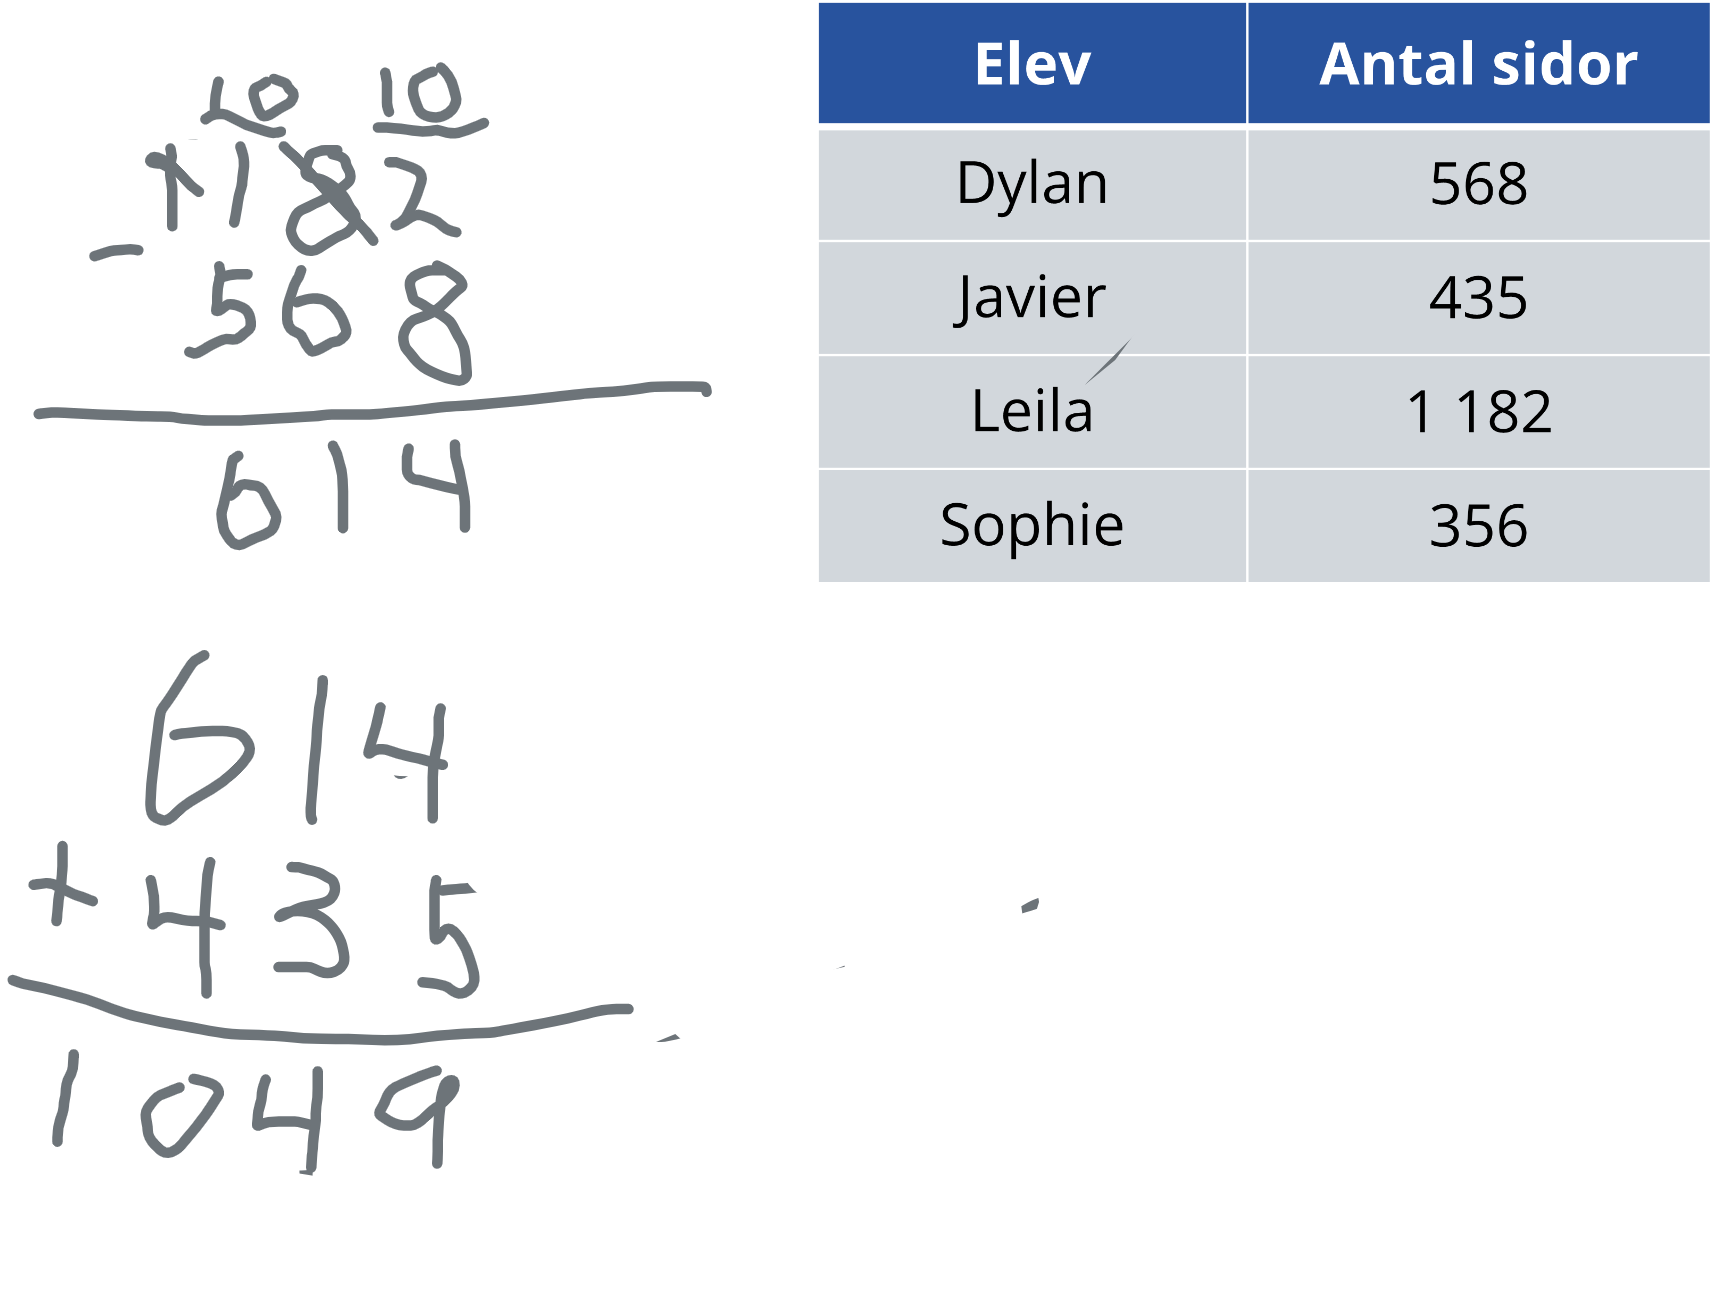 10 10
1182
- 568
614
614
+ 435
1049
Elev Antal sidor
Dylan 568
Javier 435
Leila 1 182
Sophie 356